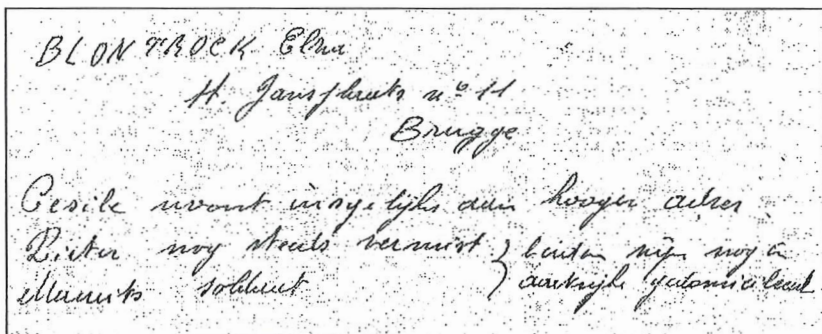 BLONTROCK Elna
St. Jansplaats nº 11
Brugge
Cesile woont insgelijks aan hooger adres
Pieter nog steeds vermist } buiten mijn nog in
Maurits soldaat } aartrijke gedomicileerd